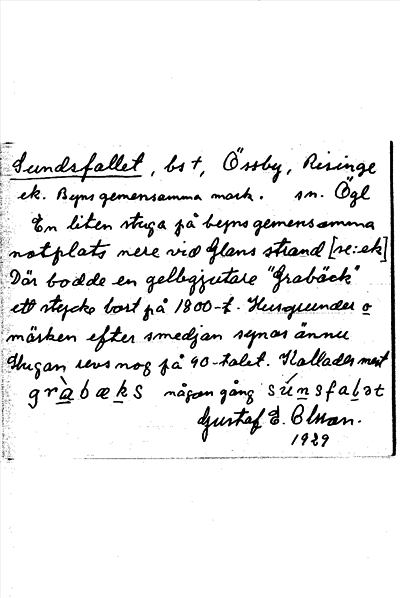 Sundsfallet, bs +, Össby, Risinge
ek. Byns gemensamma mark. sn. Ögl
En liten stuga på byns gemensamma
notplats nere vid Glans strand [se: ek]
Där bodde en gelbgjutare "Grabäck"
ett stycke bort på 1800-t. Husgrunder o
märken efter smedjan synas ännu
Stugan revs nog på 90-talet. Kallades mest
gràbæks någon gång súnsfalət
Gustaf E. Olsson.
1929